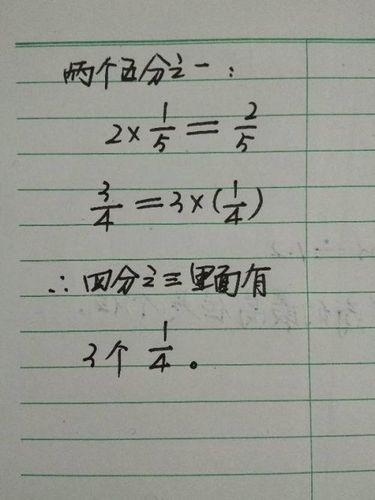 两个五分之一：
2×1/5=2/5
3/4=3×(1/4)
∴四分之三里面有
3个 1/4。